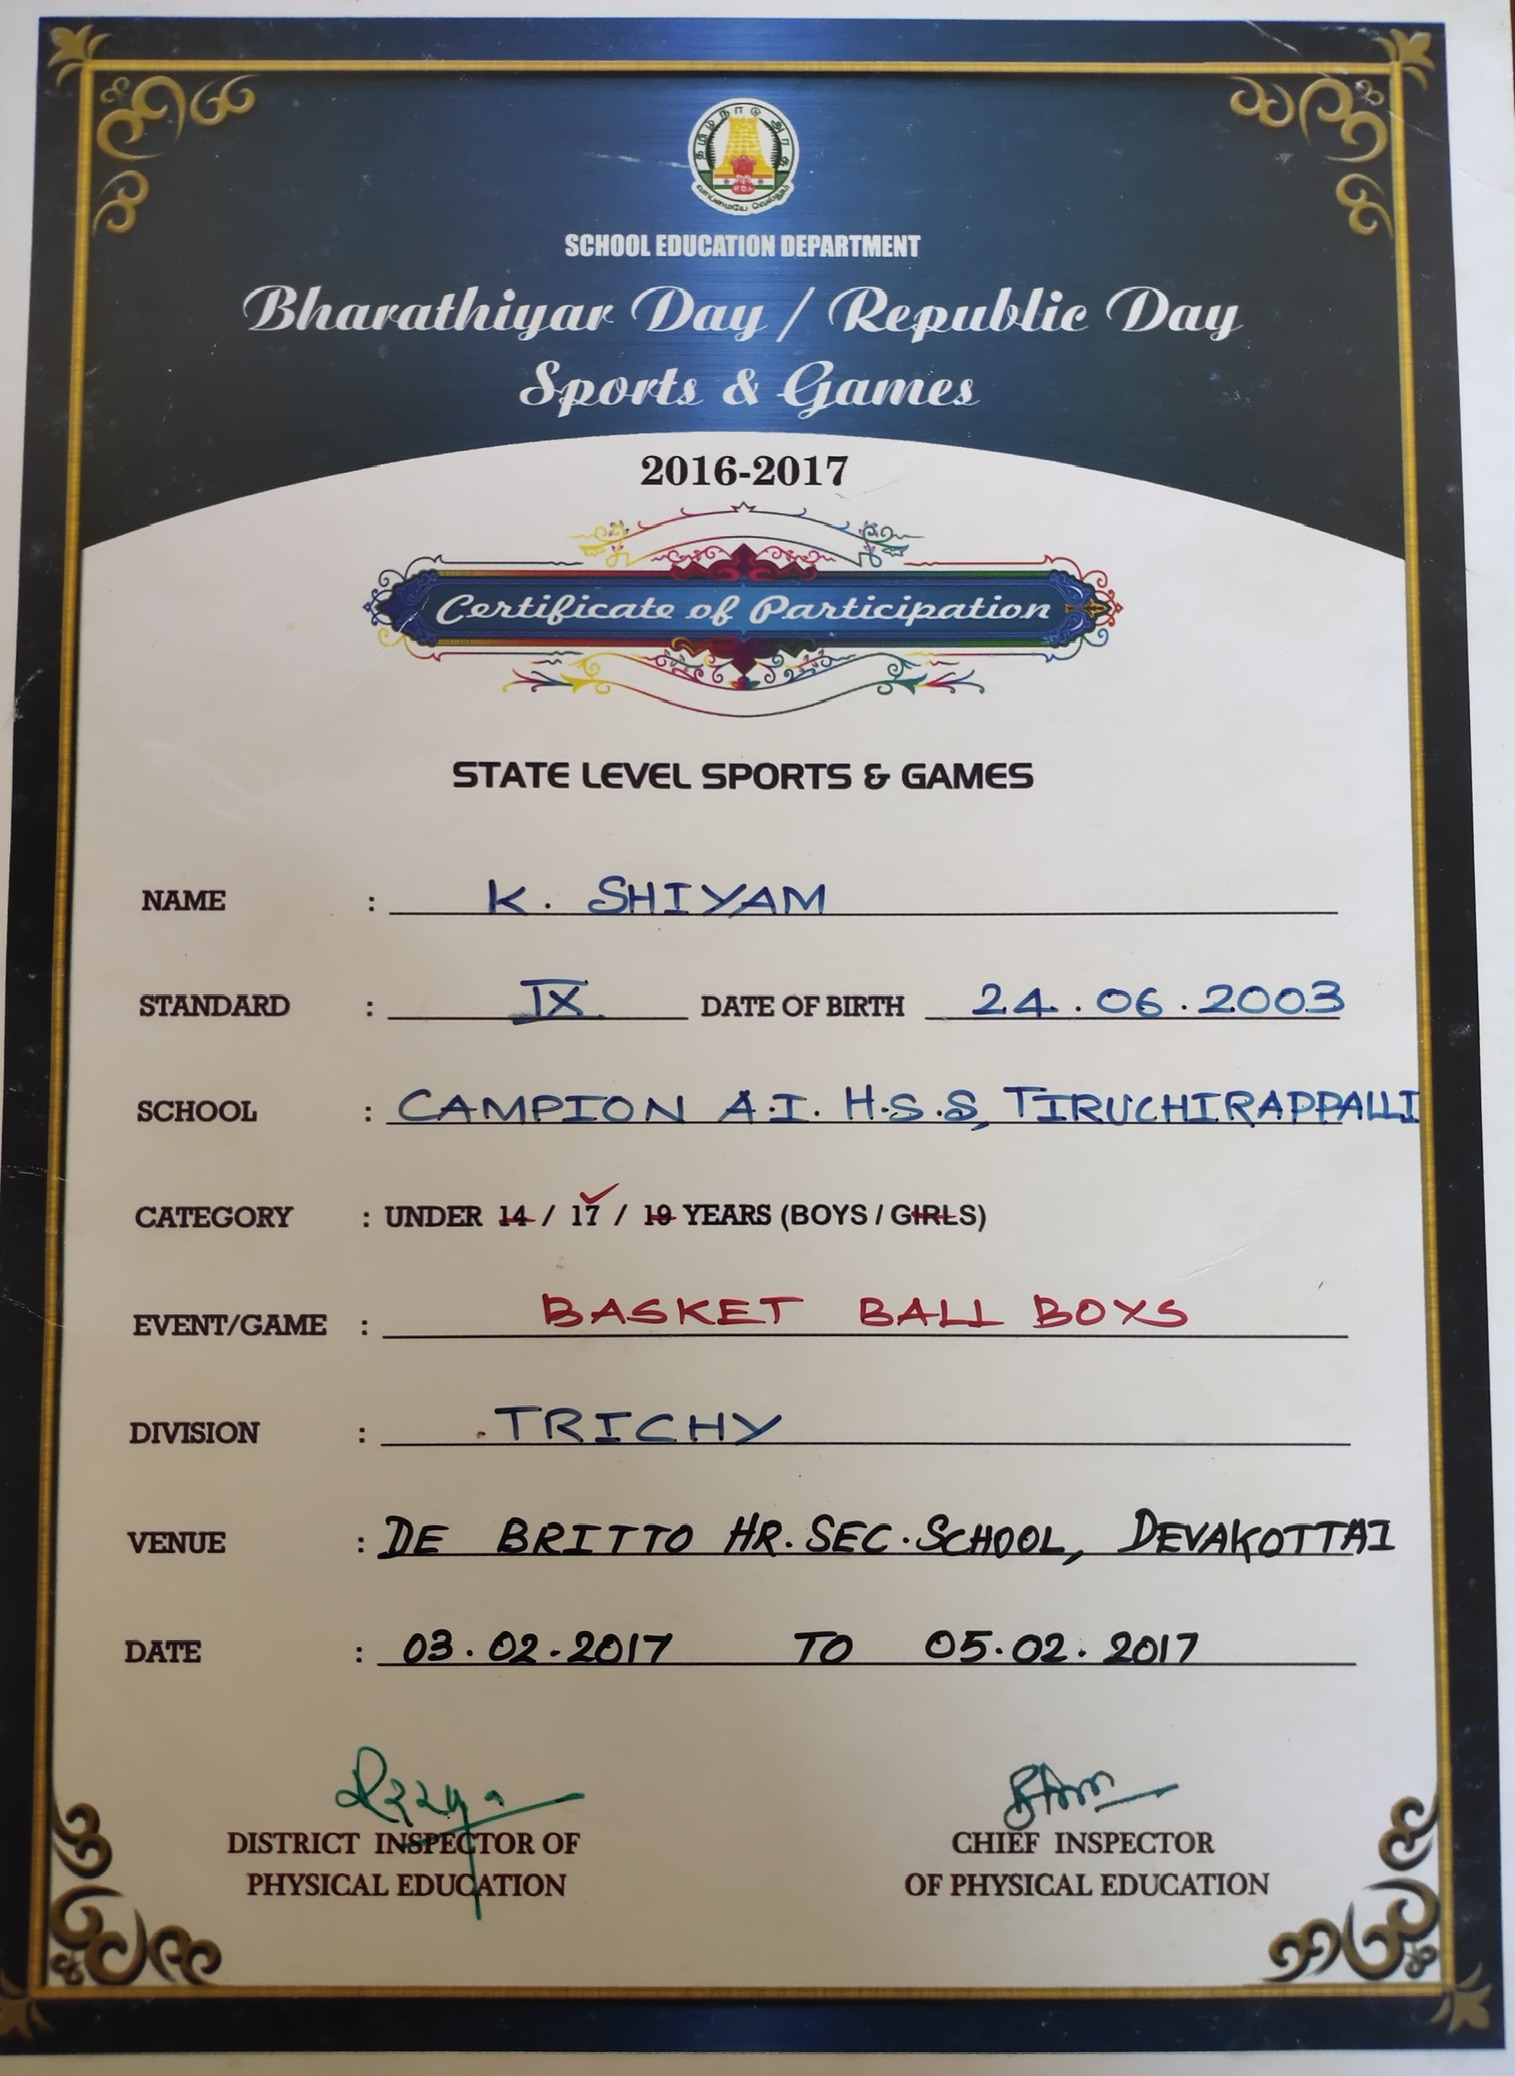 தமிழ்நாடு அரசு
வாய்மையே வெல்லும்
SCHOOL EDUCATION DEPARTMENT
Bharathiyar Day / Republic Day
Sports & Games
2016-2017
Certificate of Participation
STATE LEVEL SPORTS & GAMES
NAME : K. SHIYAM
STANDARD : IX DATE OF BIRTH 24.06.2003
SCHOOL : CAMPION A.I. H.S.S, TIRUCHIRAPPALLI
CATEGORY : UNDER 14 / 17 / 19 YEARS (BOYS / GIRLS)
EVENT/GAME : BASKET BALL BOYS
DIVISION : TRICHY
VENUE : DE BRITTO HR. SEC. SCHOOL, DEVAKOTTAI
DATE : 03.02.2017 TO 05.02.2017
DISTRICT INSPECTOR OF
PHYSICAL EDUCATION
CHIEF INSPECTOR
OF PHYSICAL EDUCATION